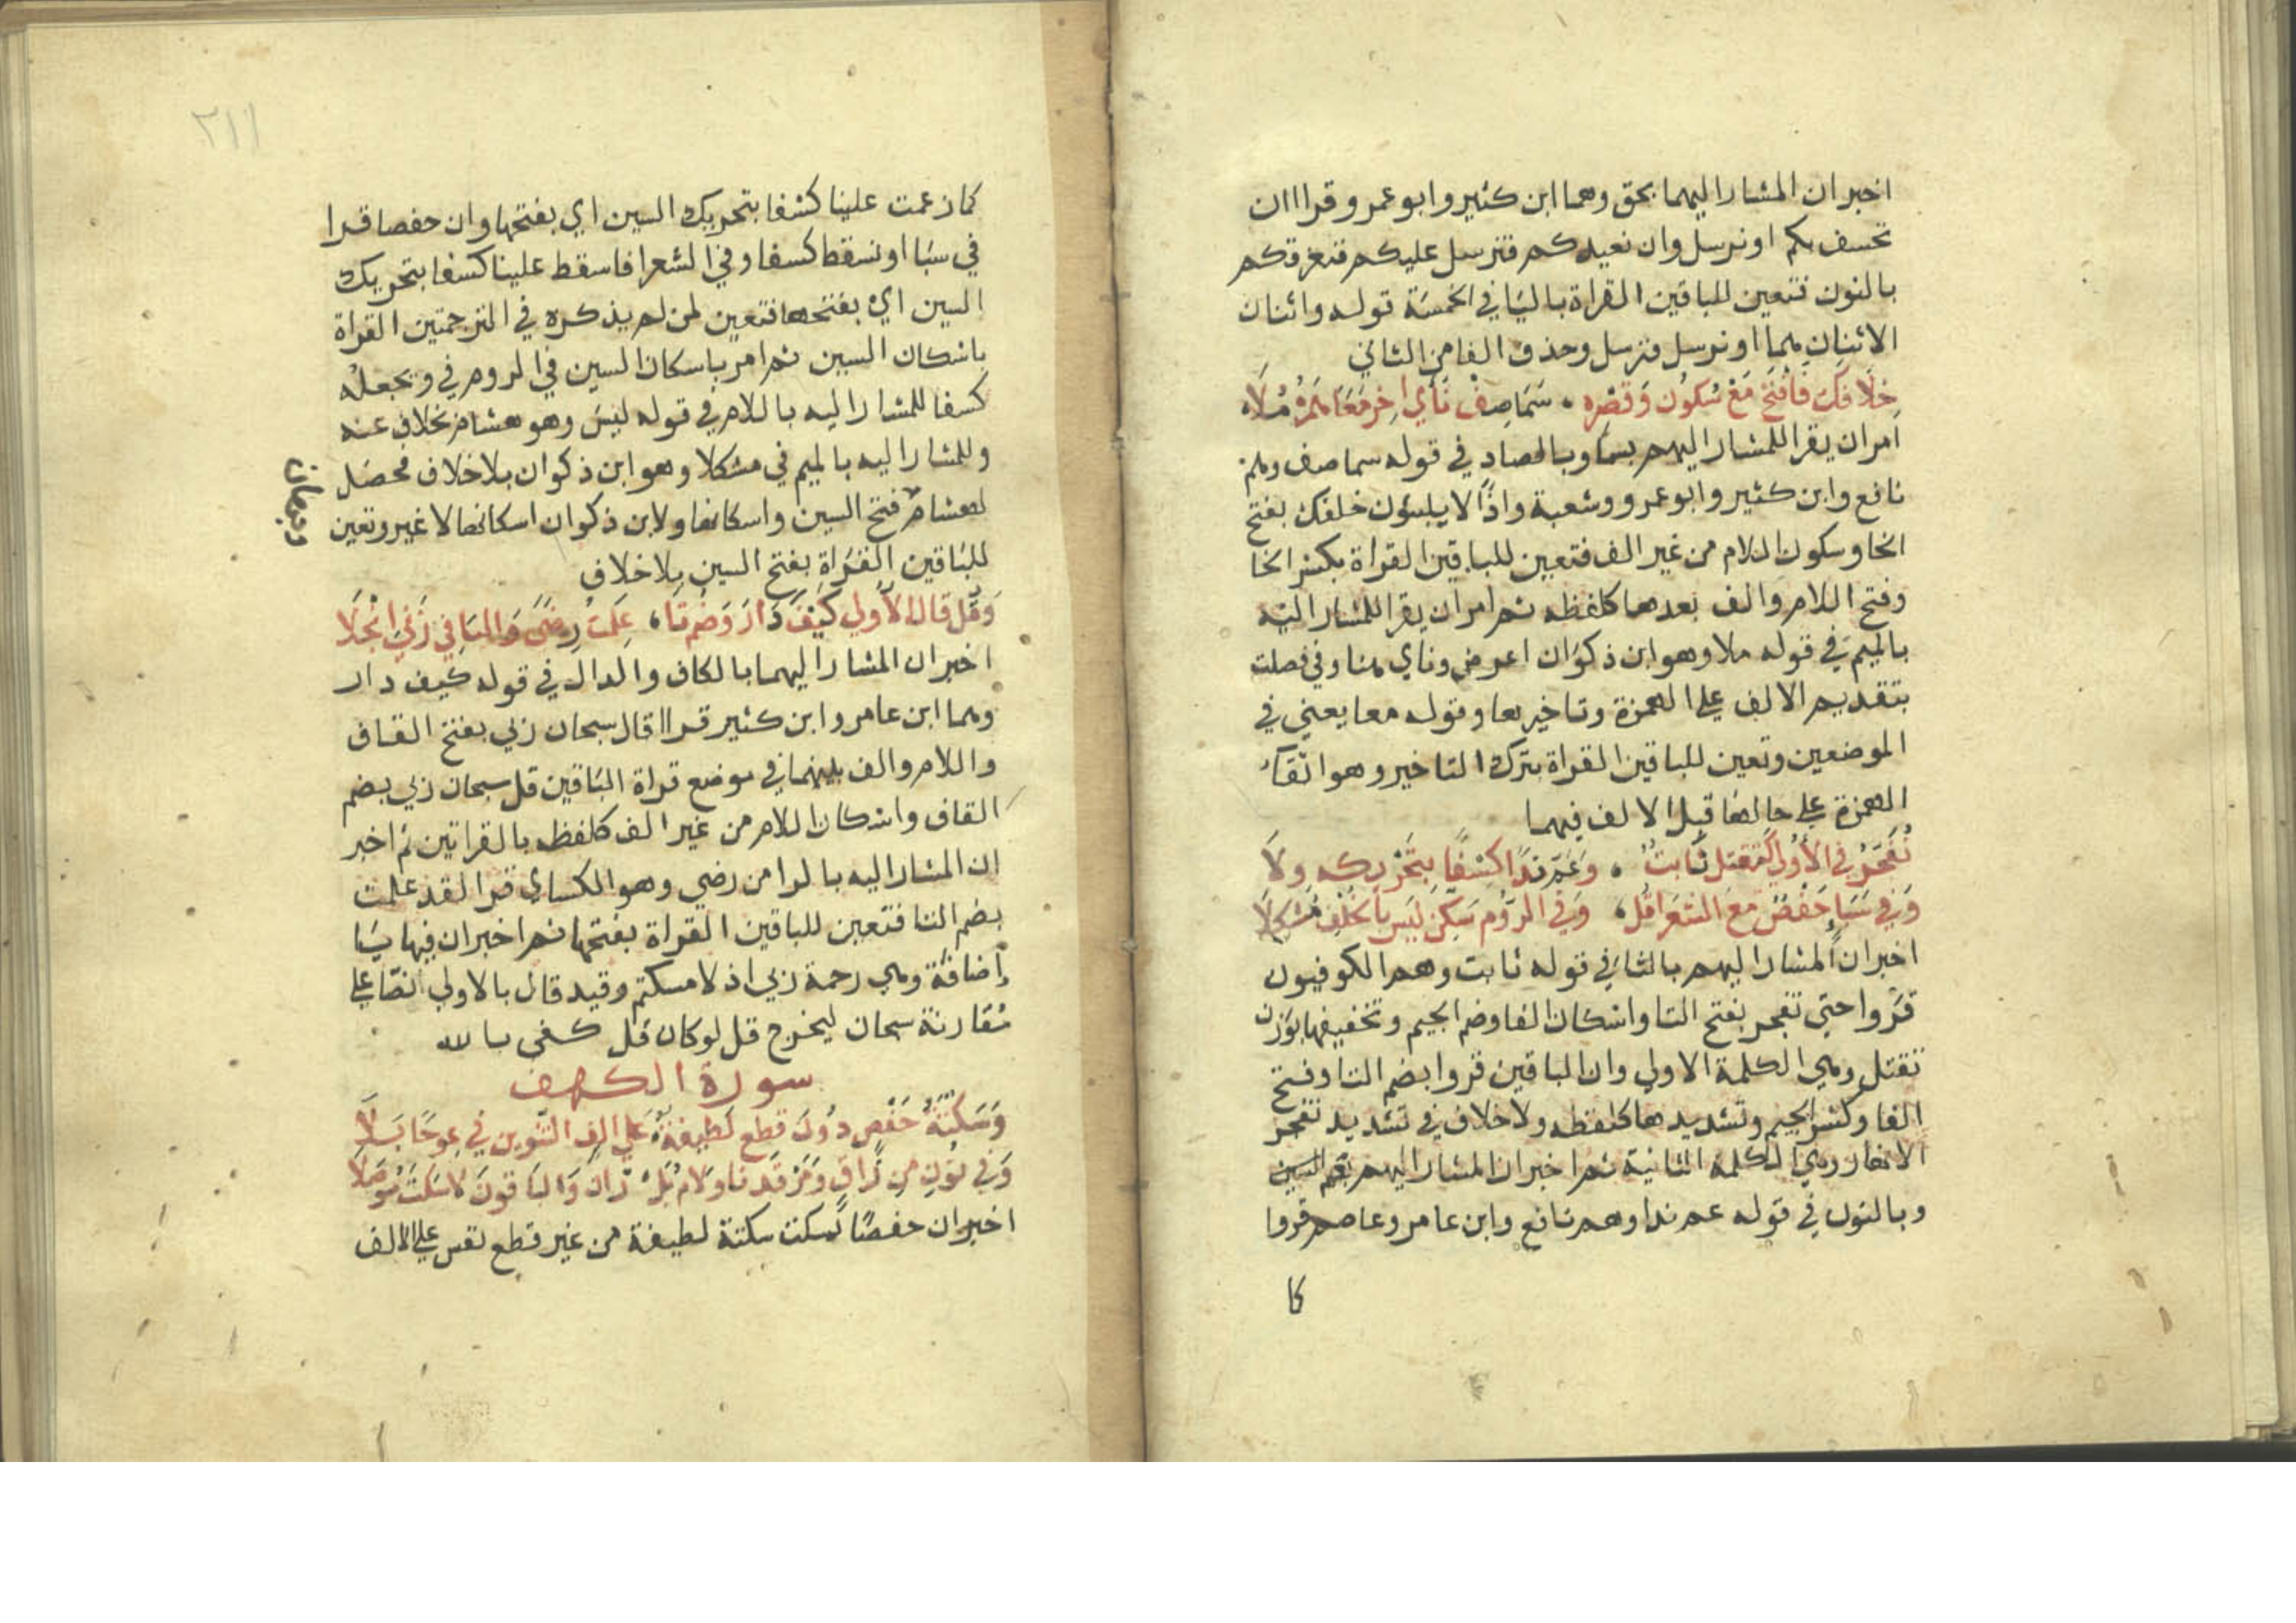 اخبر ان المشار اليهما بحق وهما ابن كثير وابو عمرو قراا ان
نخسف بكم او نرسل وان نعيدكم فنرسل عليكم فنغرقكم
بالنون فتعين للباقين القراة بالياء في الخمسة قوله واثنان
الاثنان هما او نرسل فنرسل وحذف الفا من الثاني
خلافك فافتح مع سكون وقصره ۰ سما صف نأى اخر معا همزه ملا
امر ان يقرا للمشار اليهم بسما وبالصاد في قوله سما صف وهم
نافع وابن كثير وابو عمرو وشعبة واذا لا يلبثون خلفك بفتح
الخا وسكون اللام من غير الف فتعين للباقين القراة بكسر الخا
وفتح اللام والف بعدها كلفظه ثم امر ان يقرا للمشار اليه
بالميم في قوله ملا وهو ابن ذكوان اعرض وناي هنا وفي فصلت
بتقديم الالف على الهمزة وتاخيرها وقوله معا يعني في
الموضعين وتعين للباقين القراة بترك التاخير وهو ابقاء
الهمزة على حالها قبل الالف فيهما
تفجر في الأولى كتقتل ثابت ۰ وعم ندا كسفا بتحريكه ولا
وفي سبا حفص مع الشعرا قل ۰ وفي الروم سكن ليس بالخلف مشكلا
اخبر ان المشار اليهم بالثا في قوله ثابت وهم الكوفيون
قروا حتى تفجر بفتح التا واسكان الفا وضم الجيم وتخفيفها بوزن
تقتل وهي الكلمة الاولي وان الباقين قروا بضم التا وفتح
الفا وكسر الجيم وتشديدها كلفظه ولا خلاف في تشديد تتفجر
الانهار وهي الكلمة الثانية ثم اخبر ان المشار اليهم بعم
وبالنون في قوله عم ندا وهم نافع وابن عامر وعاصم قروا
كا
٢١١
كما زعمت علينا كسفا بتحريك السين اي بفتحها وان حفصا قرا
في سبا او نسقط كسفا وفي الشعرا فاسقط علينا كسفا بتحريك
السين اي بفتحها فتعين لمن لم يذكره في الترجمتين القراة
باسكان السين ثم امر باسكان السين في الروم في ويجعله
كسفا للمشار اليه باللام في قوله ليس وهو هشام بخلاف عنه
وللمشار اليه بالميم في مشكلا وهو ابن ذكوان بلا خلاف فحصل
لهشام فتح السين واسكانها ولابن ذكوان اسكانها لا غير وتعين
وجهان
للباقين القراة بفتح السين بلا خلاف
وقل قال الاولي كيف دار وضم تا ۰ علمت رضى واليا في ربي انجلا
اخبر ان المشار اليهما بالكاف والدال في قوله كيف دار
وهما ابن عامر وابن كثير قراا قال سبحان ربي بفتح القاف
واللام والف بينهما في موضع قراة الباقين قل سبحان ربي بضم
القاف واسكان اللام من غير الف كلفظه بالقراتين ثم اخبر
ان المشار اليه بالرا من رضي وهو الكساي قرا لقد علمت
بضم التا فتعين للباقين القراة بفتحها ثم اخبر ان فيها يا
إضافة وهي رحمة ربي اذ لامسكتم وقيد قال بالاولي انصا على
مقارنة سبحان ليخرج قل لو كان قل كفى بالله
سورة الكهف
وسكتة حفص دون قطع لطيفة على الف التنوين في عوجا بلا
وفي نون من راق ومرقدنا ولام بل ران والباقون لا سكت موصلا
اخبر ان حفصا يسكت سكتة لطيفة من غير قطع نفس على الالف